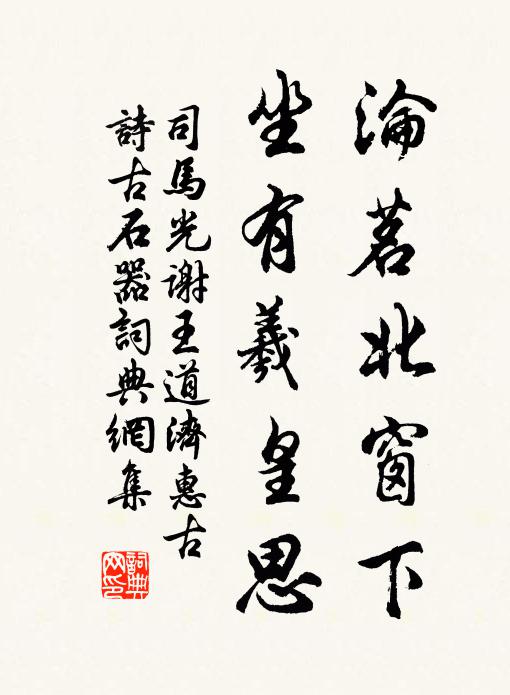 淪茗北窗下
坐有羲皇思
司馬光謝王道濟惠古
詩古石器詞典網集
詞典网印